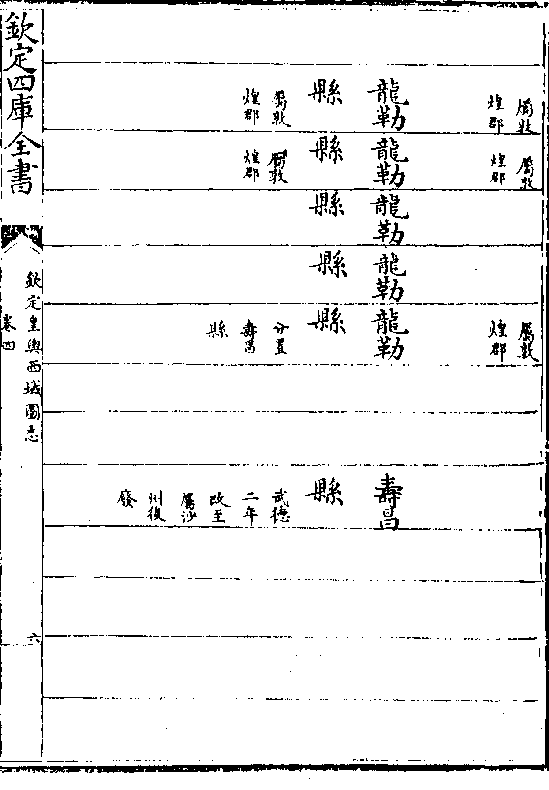 屬敦
煌郡
龍勒
縣
屬敦
煌郡
屬敦
煌郡
龍勒
縣
屬敦
煌郡
龍勒
縣
龍勒
縣
屬敦
煌郡
龍勒
縣
分置
壽昌
縣
壽昌
縣
武德
二年
改至
屬沙
州復
廢
欽定四庫全書
欽定皇輿西域圖志
卷四
六